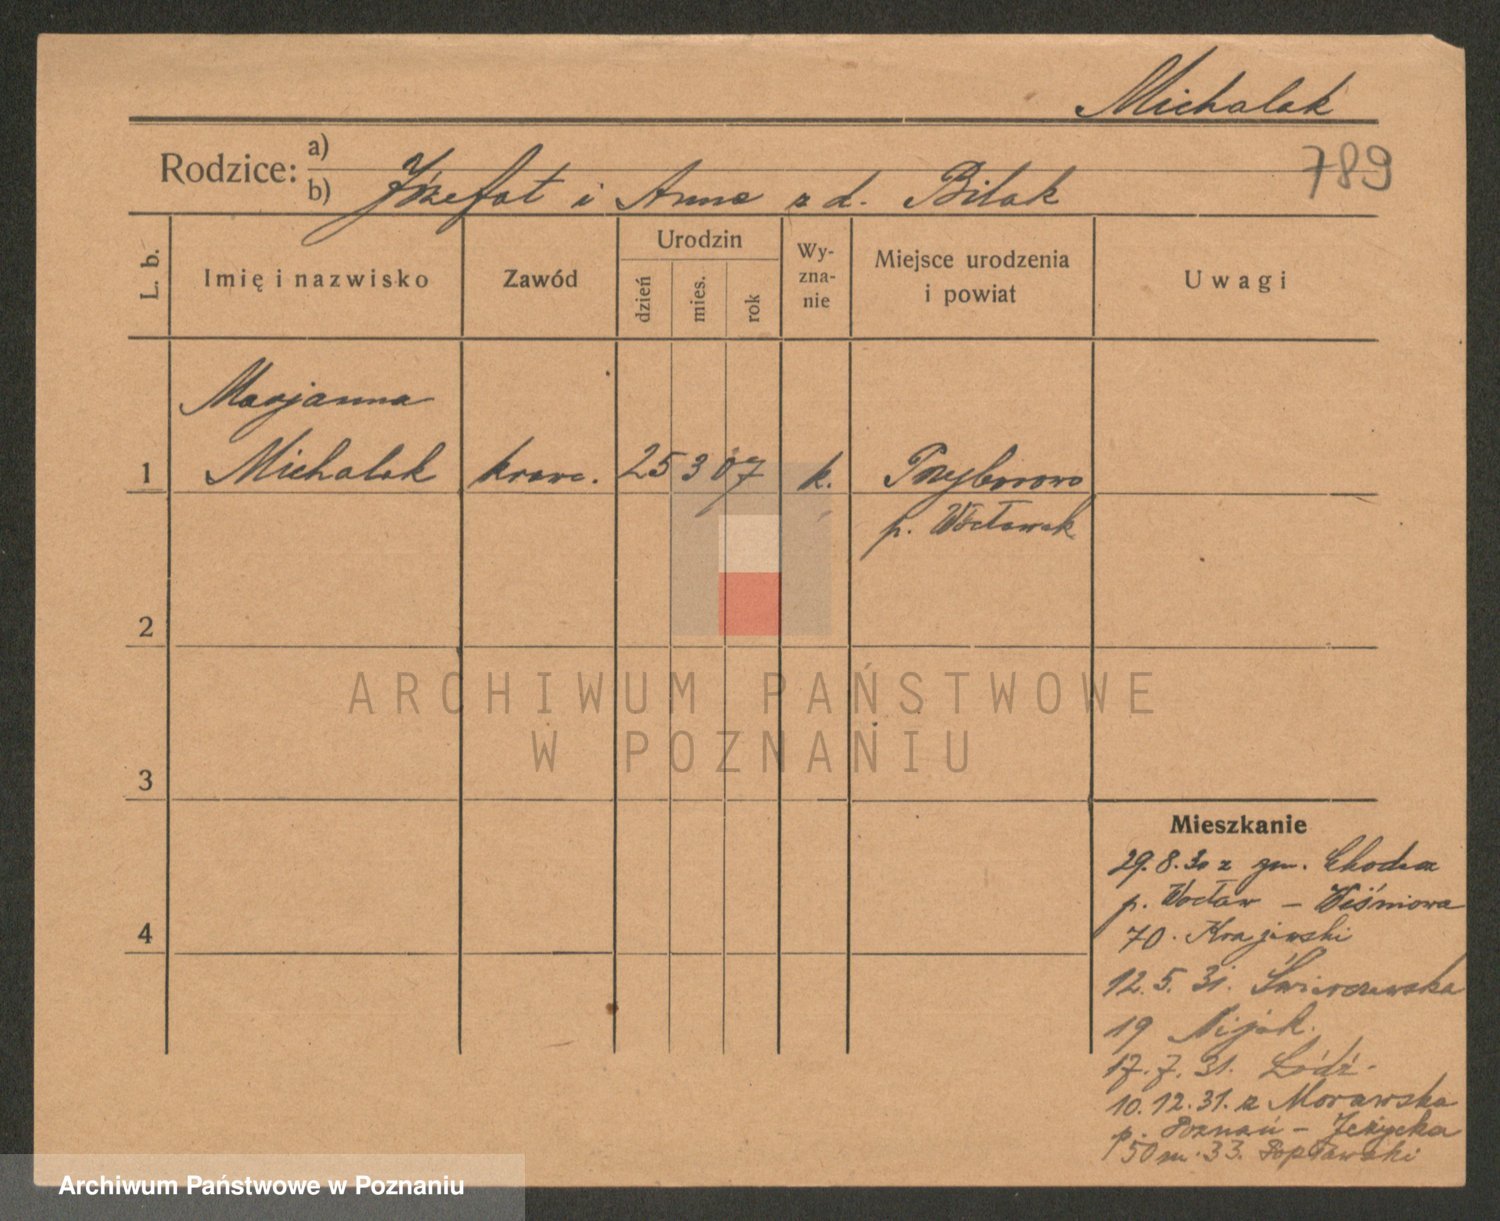 Michalak
789
Rodzice: a)
b) Józefat i Anna z d. Bilak
L. b.
Imię i nazwisko
Zawód
Urodzin
dzień
mies.
rok
Wy-
zna-
nie
Miejsce urodzenia
i powiat
Uwagi
Marjanna
1 Michalak kraw. 25 3 07 k. Przyborowo
p. Wocławek
2
3
4
ARCHIWUM PAŃSTWOWE
W POZNANIU
Mieszkanie
29.8.30 z gm. Chodecz
p. Wocław - Wiśniowa
70. Krajewski
12.5.31. Świerczewska
19 Nijak.
17.7.31. Łódź -
10.12.31. z Morawska
p. Poznań - Jeżycka
50 m. 33. Popławski
Archiwum Państwowe w Poznaniu